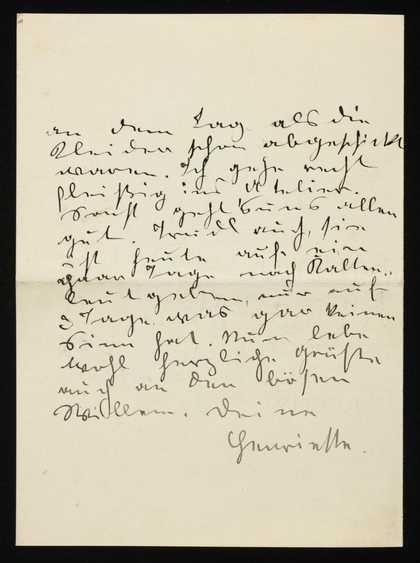 an dem Tag als die
Kleider schon abgeschickt
waren. Ich gehe recht
fleißig ins Atelier.
Sonst geht's uns allen
gut. Trudl auch, sie
ist heute auf ein
paar Tage nach Kalten-
leutgeben, nur auf
3 Tage was gar keinen
Sinn hat. Nun lebe
wohl herzliche Grüße
auch an den bösen
Willem. Deine
Henriette.